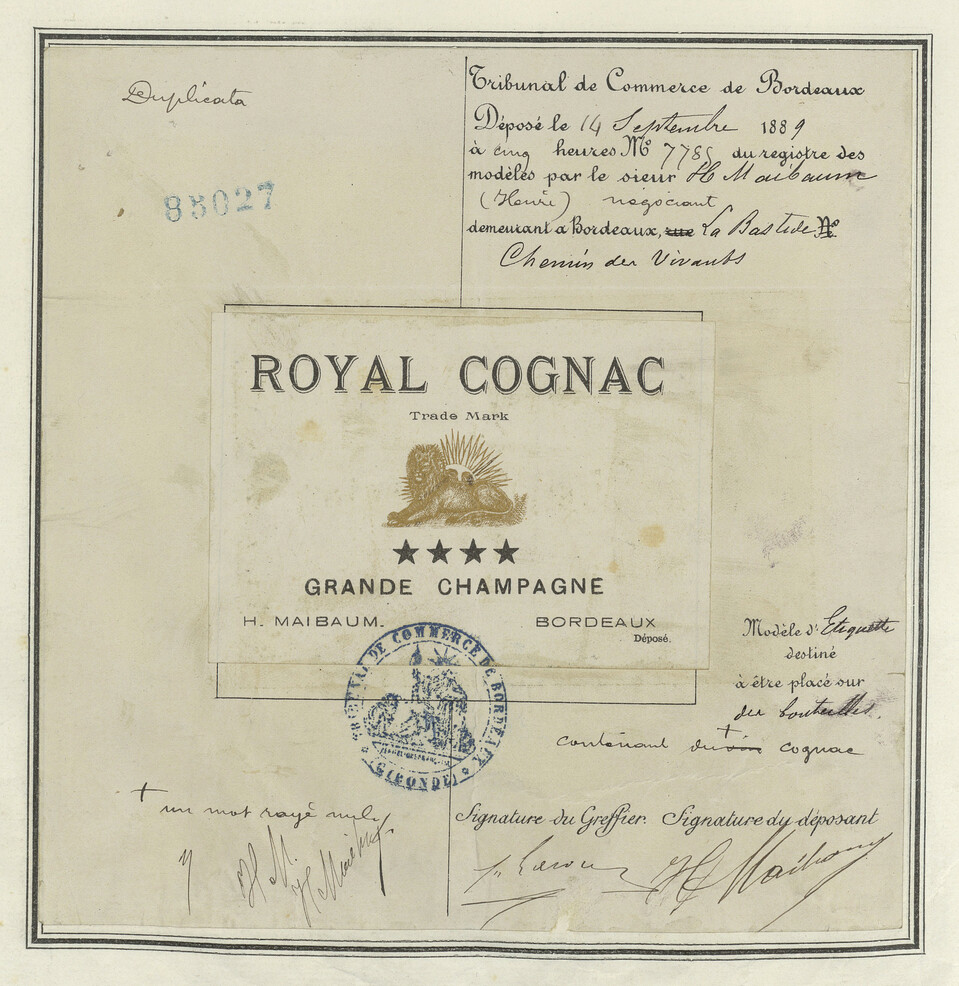 Duplicata
85027
Tribunal de Commerce de Bordeaux
Déposé le 14 Septembre 1889
à cinq heures No 7785 du registre des
modèles par le sieur H Maibaum
(Henri) négociant
demeurant à Bordeaux, rue La Bastide No
Chemin des Vivants
ROYAL COGNAC
Trade Mark
★★★★
GRANDE CHAMPAGNE
H. MAIBAUM. BORDEAUX
Déposé.
TRIBUNAL DE COMMERCE DE BORDEAUX
GIRONDE
Modèle d'Etiquette
destiné
à être placé sur
des bouteilles.
contenant du vin + cognac
+ un mot rayé nul
H M.
H Maibaum
Signature du Greffier. Signature du déposant
H Maibaum